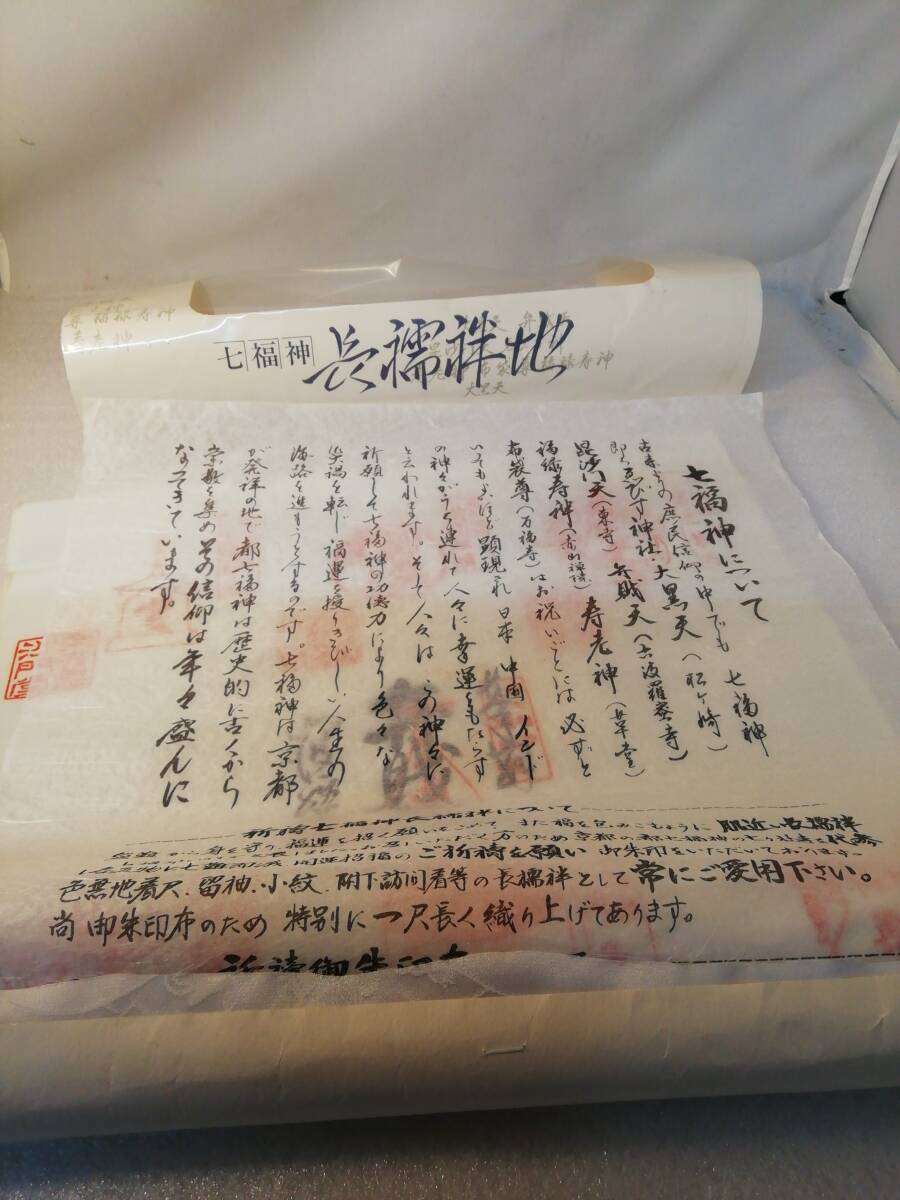 七福神
長襦袢地
七福神について
古来よりの庶民信仰の中でも 七福神
即ちゑびす神社・大黒天(松ヶ崎)
毘沙門天(東寺) 弁財天(六波羅蜜寺)
福禄寿神(赤山禅院) 寿老神(革堂)
布袋尊(万福寺)はお祝いごとには必ずと
いってもよいほど顕現され 日本 中国 インド
の神々がうち連れて人々に幸運をもたらす
と云われます。そして人々はこの神々に
祈願して七福神の功徳力により色々な
災禍を転じ福運を授りきびしい人生の
海路を進もうとするのです。七福神は京都
が発祥の地で都七福神は歴史的に古くから
崇敬を集めその信仰は年々盛んに
なってきています。
祈祷七福神長襦袢について
福運を招く願いをこめて また福を包みこむように 肌近い長襦袢
開運招福のご祈祷を願い 御朱印をいただいております。
色無地着尺、留袖、小紋、附下訪問着等の長襦袢として常にご愛用下さい。
尚 御朱印布のため 特別に一尺長く織り上げてあります。
祈祷御朱印布